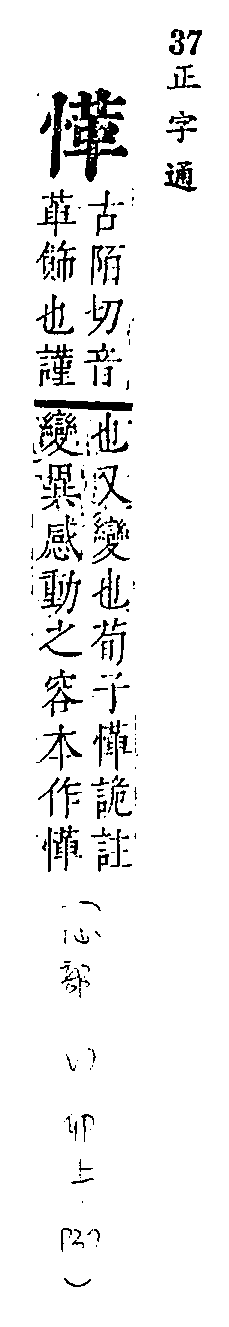 37
正字通
愅
古陌切音
革飾也謹
也又變也荀子愅詭註
變異感動之容本作愅
（心部 卯上